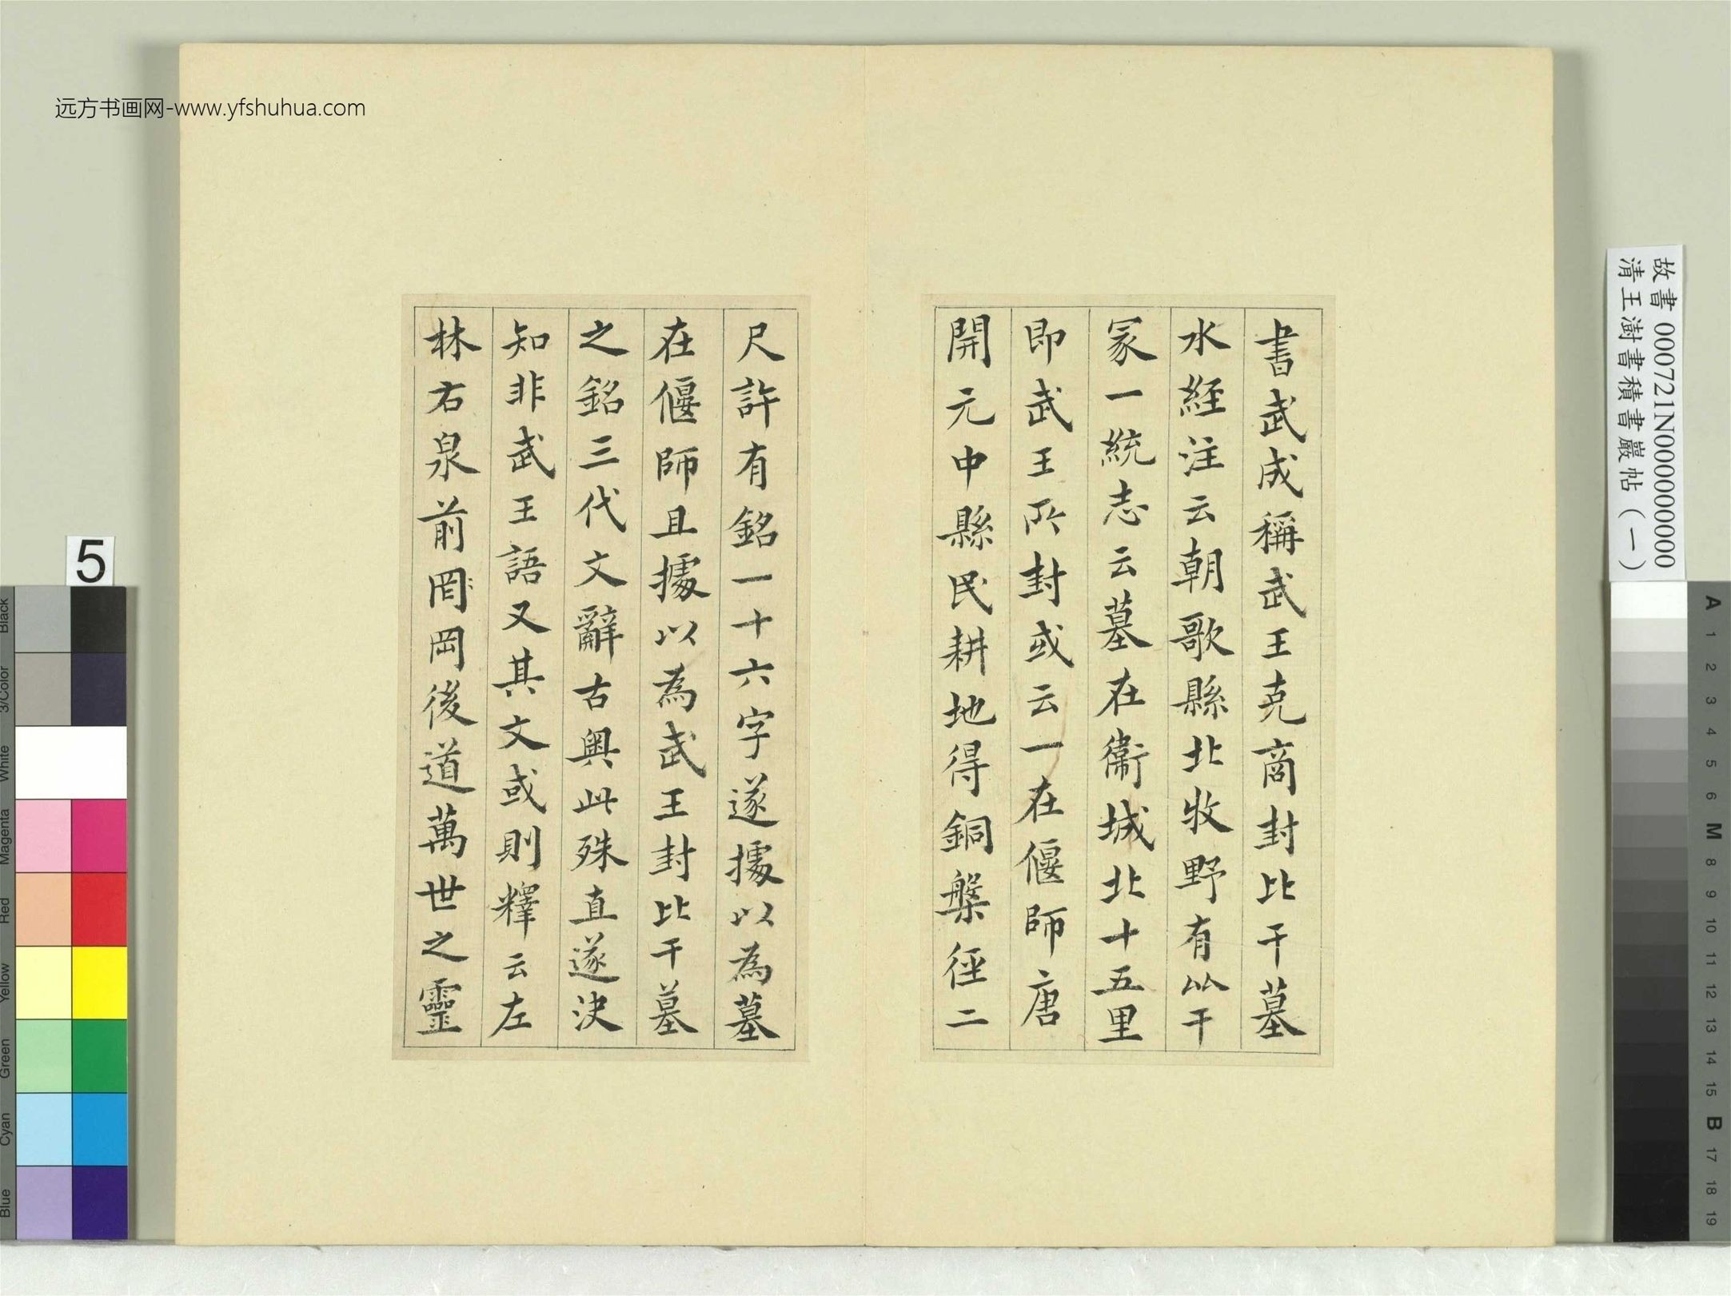 书武成稱武王克商封比干墓
水經注云朝歌縣北牧野有比干
冢一統志云墓在衞城北十五里
即武王所封或云一在偃師唐
開元中縣民耕地得銅槃徑二
尺許有銘一十六字遂據以為墓
在偃師且據以為武王封比干墓
之銘三代文辭古奧此殊直遂決
知非武王語又其文或則釋云左
林右泉前岡岡後道萬世之靈
故書 000721N000000000
清王澍書積書巖帖（一）
远方书画网-www.yfshuhua.com
5
Black
3/Color
White
Magenta
Red
Yellow
Green
Cyan
Blue
A
1
2
3
4
5
6
M
8
9
10
11
12
13
14
15
B
17
18
19